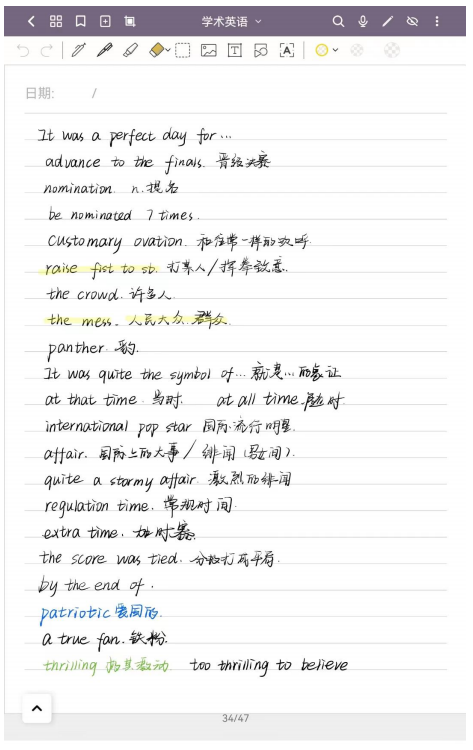 学术英语
日期: /
It was a perfect day for…
advance to the finals. 晋级决赛
nomination n.提名
be nominated 7 times.
customary ovation. 和往常一样的欢呼
raise fist to sb. 打某人/挥拳致意.
the crowd. 许多人.
the mess. 人民大众.群众.
panther. 豹.
It was quite the symbol of… 就是…的象征
at that time. 当时. at all time. 时
international pop star 国际流行明星.
affair. 国际上的大事/绯闻(男女间).
quite a stormy affair. 激烈的绯闻
regulation time. 常规时间.
extra time. 加时赛.
the score was tied. 分数打成平局.
by the end of .
patriotic 爱国的.
a true fan. 铁粉.
thrilling 激动 too thrilling to believe
34/47